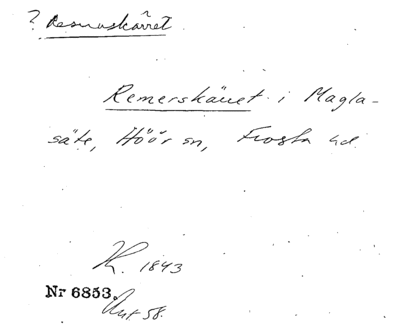 ? Resmuskärret
Remerskäuet i Magla-
säte, Höör sn, Frosta hd.
K. 1843
Nr 6853.
Aut 58.